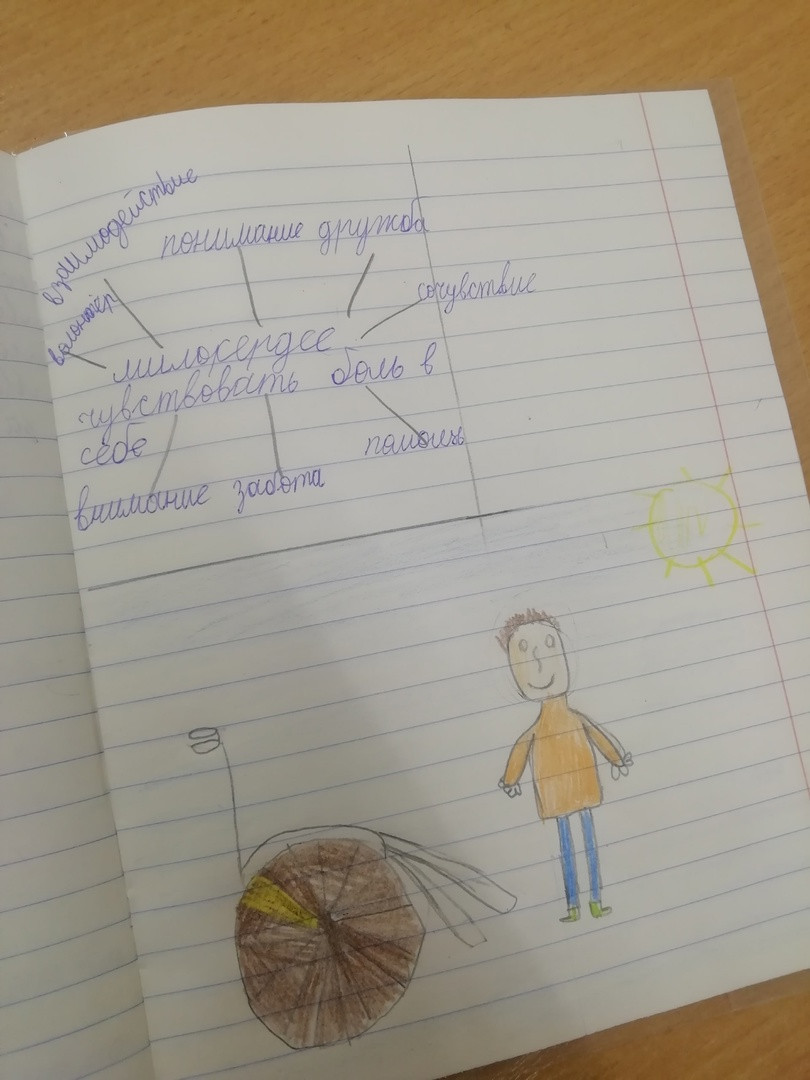 взаимодействие
понимание дружба
сочувствие
волонтёр
милосердее
чувствовать боль в
себе
помощь
внимание забота